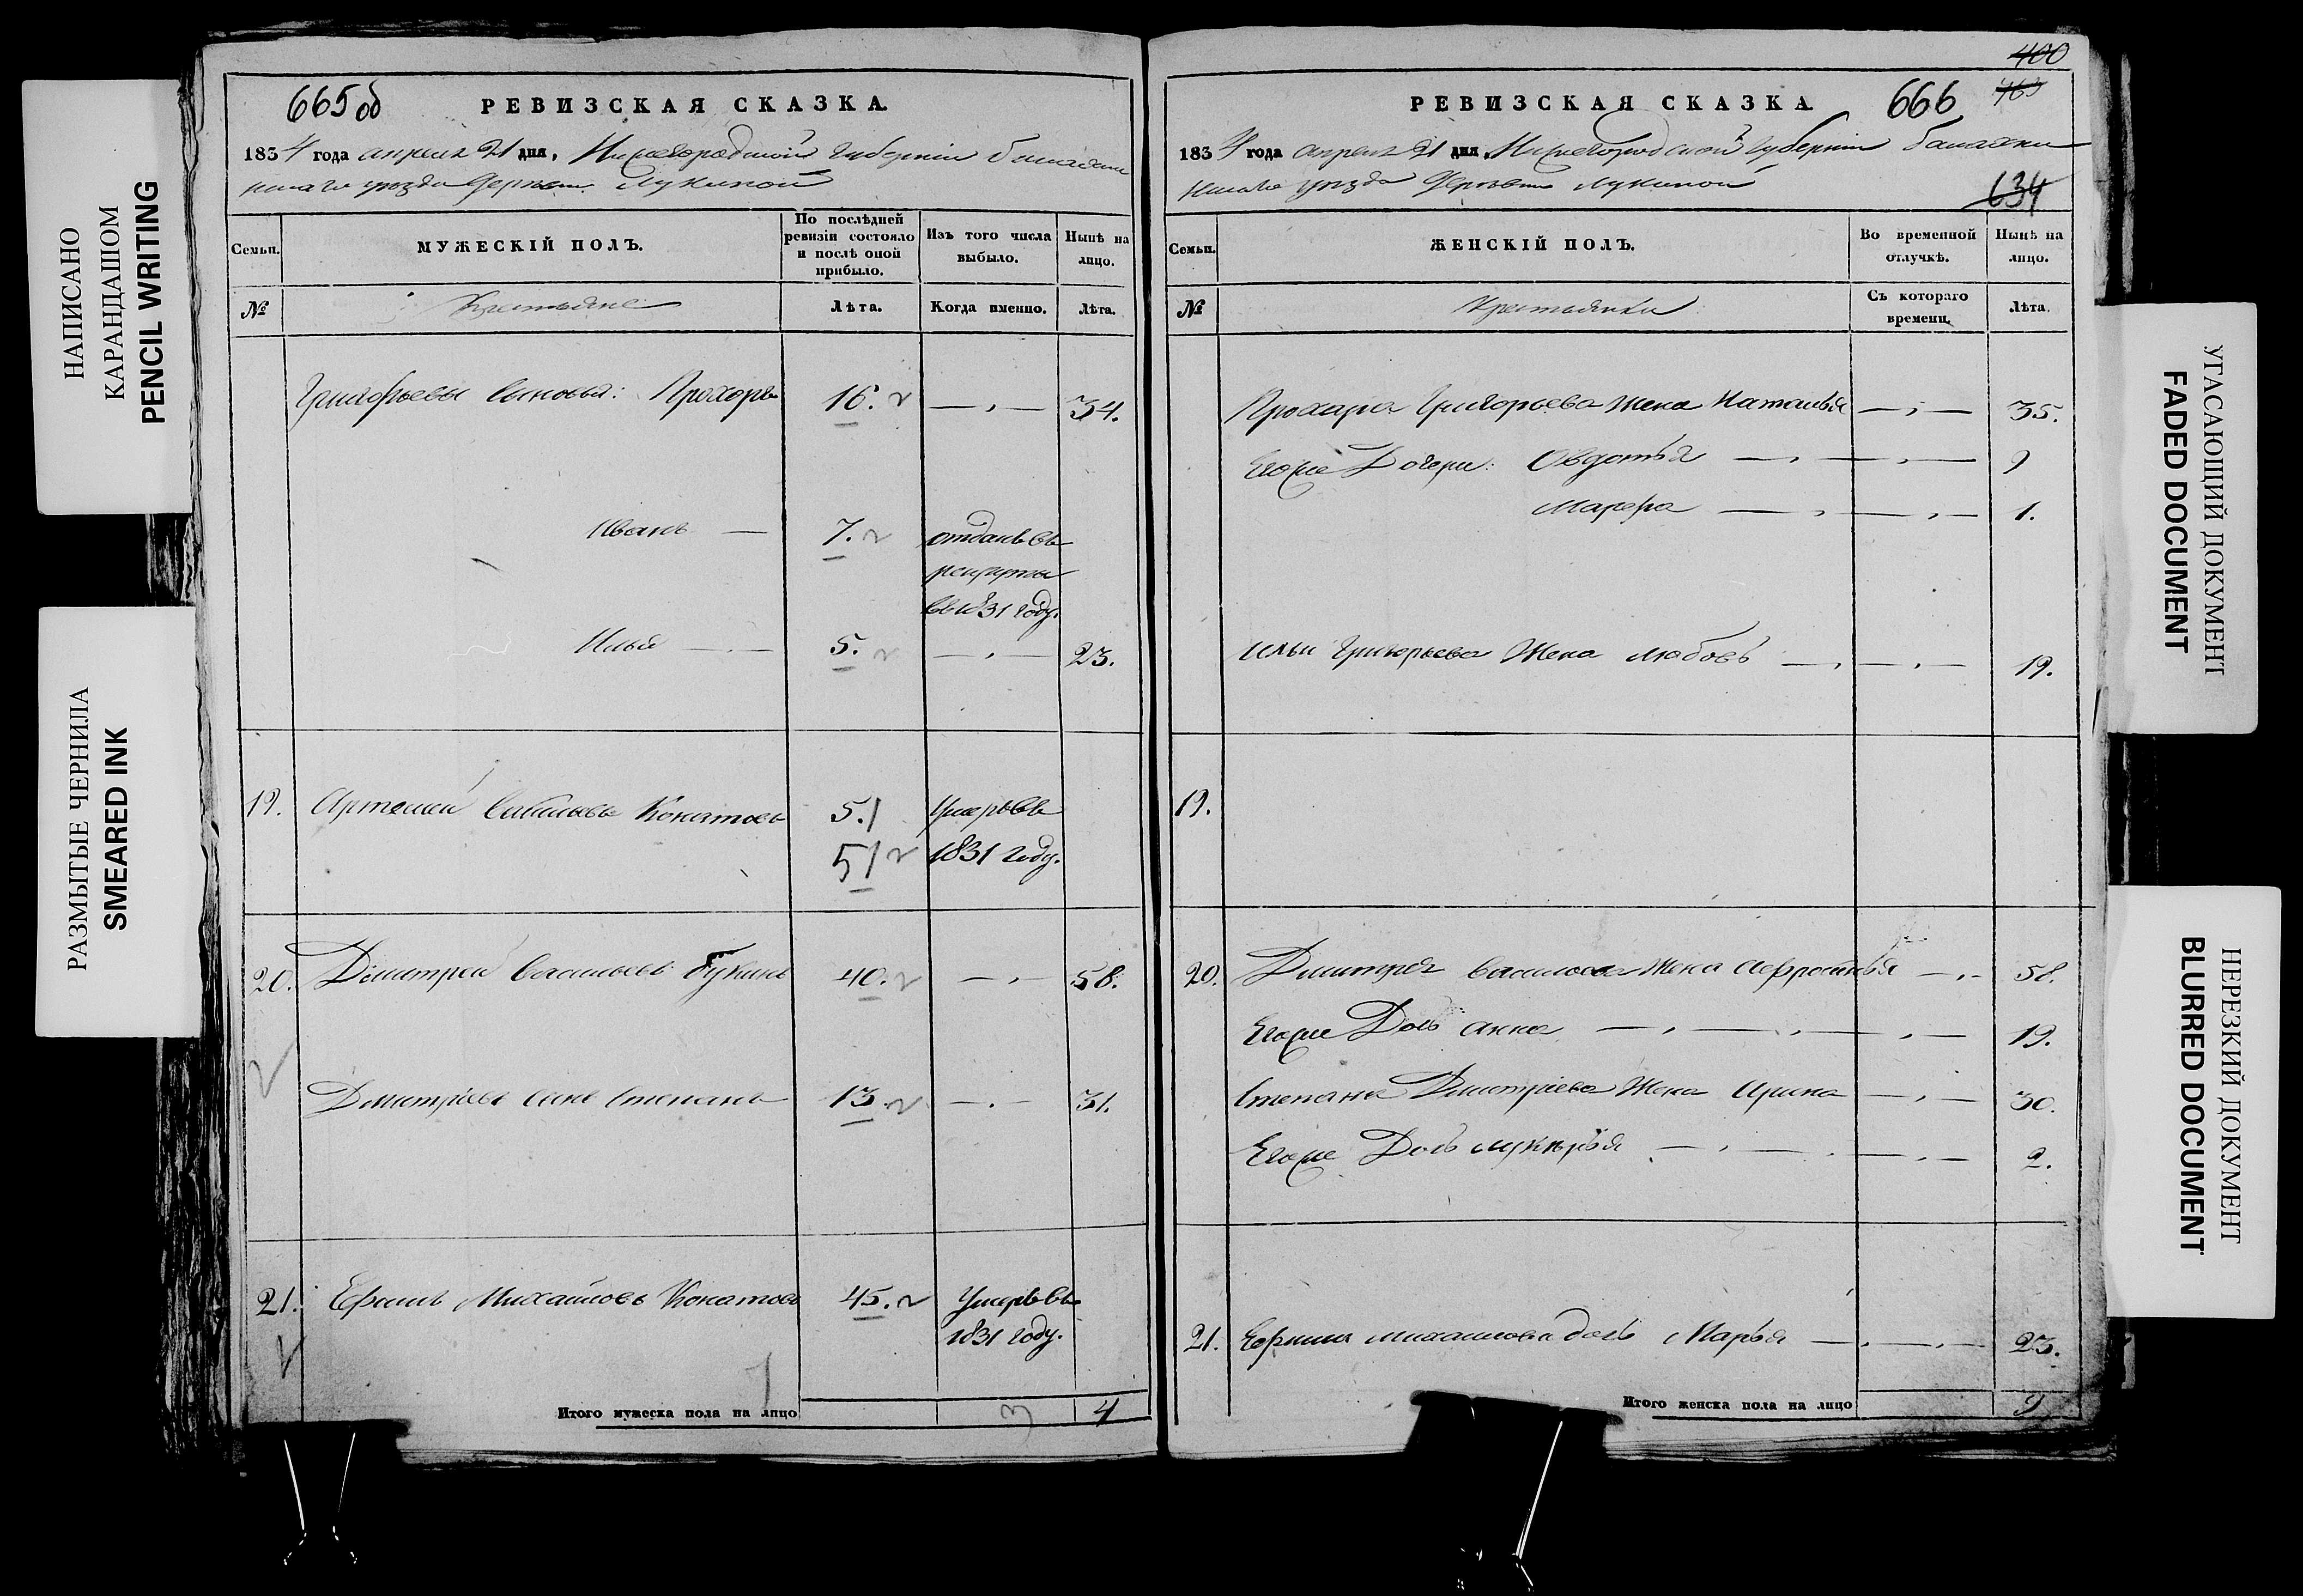 НАПИСАНО
КАРАНДАШОМ
PENCIL WRITING
РАЗМЫТЫЕ ЧЕРНИЛА
SMEARED INK
665 об
РЕВИЗСКАЯ СКАЗКА.
1834 года апреля 21 дня, Нижегородской губернiи балахни
нскаго уезда Деревни Лукиной
Семьи.
МУЖЕСКІЙ ПОЛЪ.
По послѣдней ревизіи состояло и послѣ оной прибыло.
Изъ того числа выбыло.
Нынѣ на лицо.
№
Крестьяне
Лѣта.
Когда именно.
Лѣта.
Григорьевы сыновья: Прохоръ 16. — 34.
Иванъ — 7. отданъ въ
рекруты
въ 1831 году.
Илья — 5. — 23.
19. Артемей Конатовъ 51 Умеръ въ
51 1831 году.
20. Дмитрей Васильевъ Букинъ 40. — 58.
Дмитріевъ сынъ Степанъ 13. — 31.
21. Ефимъ Михайловъ Конатовъ 45. Умеръ въ
1831 году.
Итого мужеска пола на лицо 3 4
400
РЕВИЗСКАЯ СКАЗКА 666 463
1834 года апреля 21 дня, Нижегородской губернiи балахни
нскаго уезда Деревни Лукиной
634
Семьи.
ЖЕНСКІЙ ПОЛЪ.
Во временной отлучкѣ.
Нынѣ на лицо.
№
Крестьянки
Съ котораго времени.
Лѣта.
Прохара Григорьева жена Наталья — 35.
Егоже Дочери: Овдотья — 9
Марфа — 1.
Ильи Григорьева Жена Любовь — 19.
19.
20. Дмитрея Васильева Жена Афросинья — 58.
Егоже Дочь Анна — 19.
Степана Дмитріева Жена Ирина — 30.
Егоже Дочь Лукерья — 2.
21. Ефима Михайлова дочь Марья — 23.
Итого женска пола на лицо 9
УГАСАЮЩИЙ ДОКУМЕНТ
FADED DOCUMENT
НЕРЕЗКИЙ ДОКУМЕНТ
BLURRED DOCUMENT